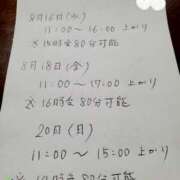 8月16日(水)
11:00〜16:00 上がり
※15時を80分可能
8月18日(金)
11:00〜17:00 上がり
※16時を80分可能
20日(日)
11:00〜15:00 上がり
80分可能